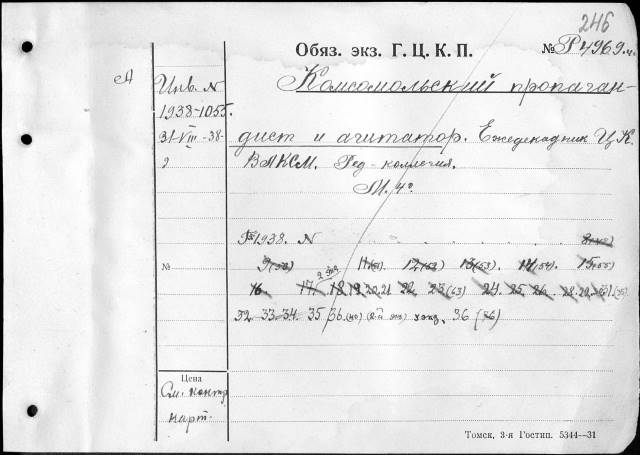 246
Обяз. экз. Г. Ц. К. П. № Р4969.
А
Инв. N
1938-1055.
31-VIII-38-
2
Комсомольский пропаган-
дист и агитатор. Ежедекадник Ц.К.
ВЛКСМ. Ред-коллегия.
М. 4°.
1938. N 8
9 11 12 13(53) 14(54) 15(55)
№
2 экз
16. 17. 18. 19. 20. 21 22. 23(63) 24. 25. 26. 28. 29.
32 33. 34. 35. 36. экз. 36
Цена
См. контр
карт.
Томск, 3-я Гостип. 5344—31